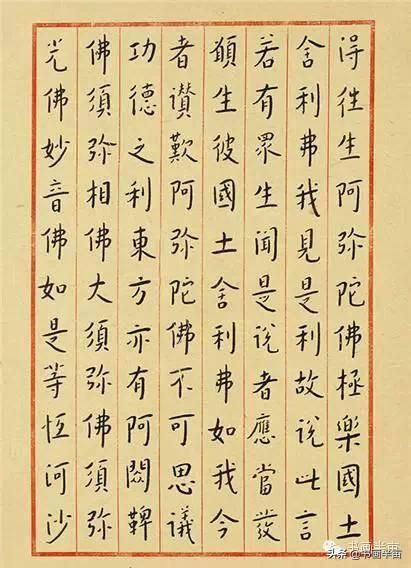 得往生阿弥陀佛極樂國土
舍利弗我見是利故說此言
若有眾生聞是說者應當發
願生彼國土舍利弗如我今
者讚歎阿弥陀佛不可思議
功德之利東方亦有阿閦鞞
佛須弥相佛大須弥佛須弥
光佛妙音佛如是等恒河沙
书画半亩
头条 @书画半亩